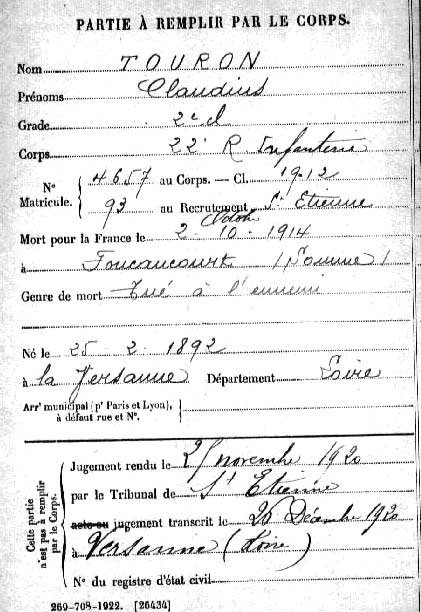 PARTIE À REMPLIR PAR LE CORPS.
Nom TOURON
Prénoms Claudius
Grade 2e cl
Corps 22e R. Infanterie
N° Matricule. 4657 au Corps. — Cl. 1912
93 au Recrutement St Etienne
Mort pour la France le 2 10 - 1914
à Foucaucourt (Somme)
Genre de mort Tué à l'ennemi
Né le 25 - 2 - 1892
à la Versanne Département Loire
Arrt municipal (pr Paris et Lyon), à défaut rue et N°.
Cette partie n'est pas à remplir par le Corps.
Jugement rendu le novembre 1920
par le Tribunal de St Etienne
acte ou jugement transcrit le Décembre 1920
à Versanne (Loire)
N° du registre d'état civil
269-708-1922. [26434]